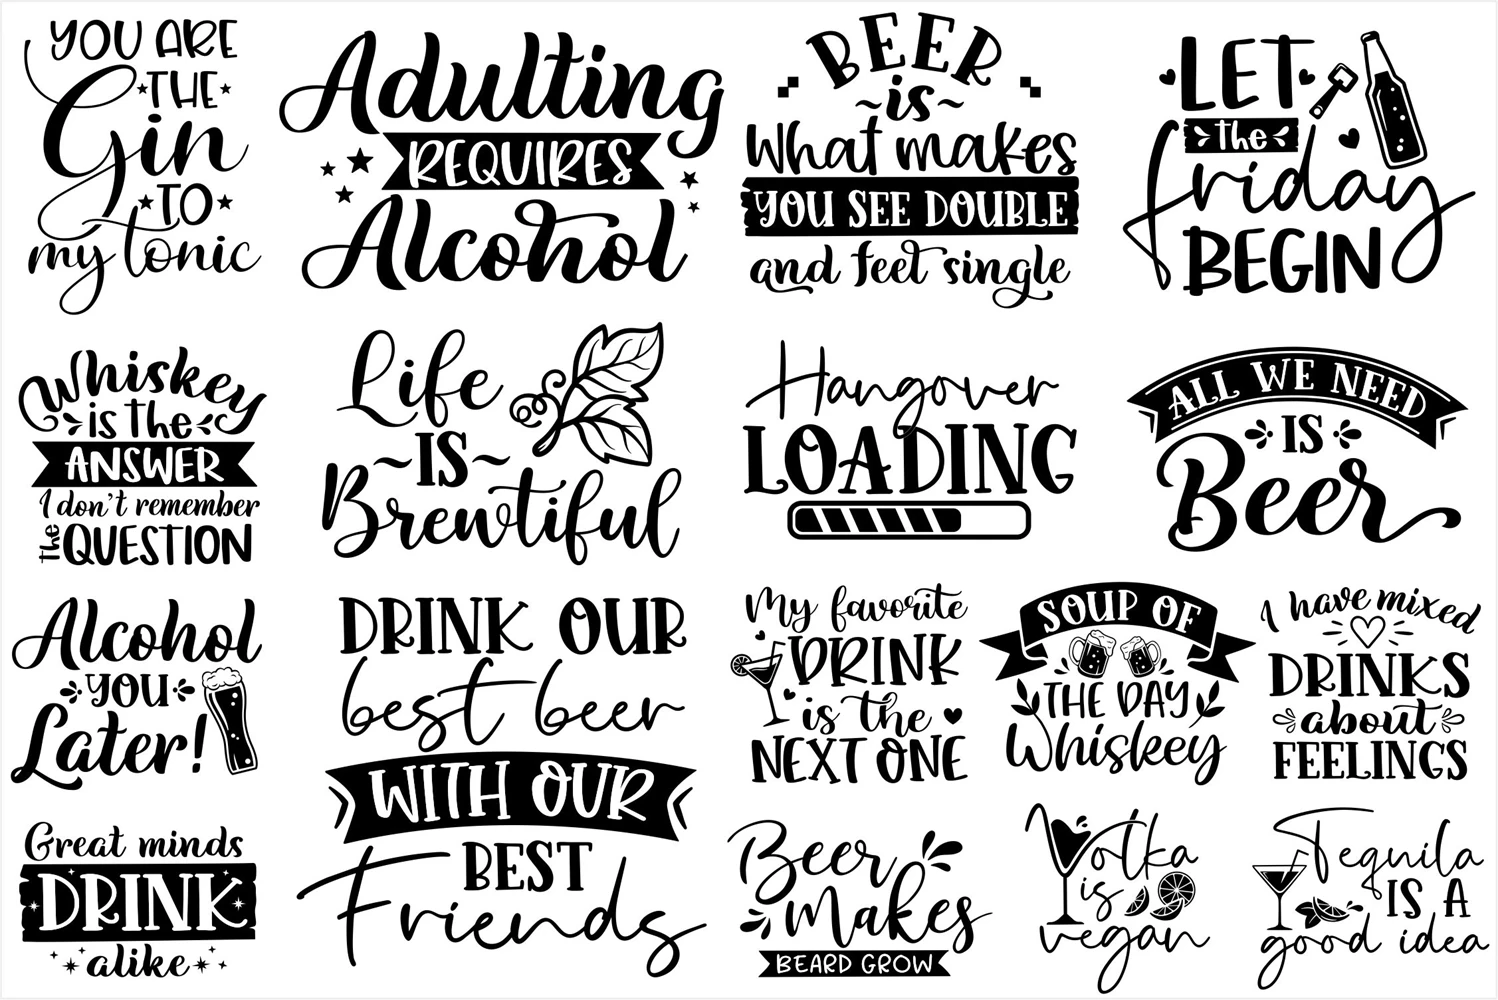 YOU ARE
THE
Gin
TO
my tonic
Adulting
REQUIRES
Alcohol
BEER
~is~
What makes
YOU SEE DOUBLE
and feel single
LET
the
friday
BEGIN
Whiskey
is the
ANSWER
I don't remember
the QUESTION
Life
~IS~
Brewtiful
Hangover
LOADING
ALL WE NEED
IS
Beer
Alcohol
YOU
Later!
DRINK OUR
best beer
WITH OUR
BEST
Friends
My favorite
DRINK
is the
NEXT ONE
SOUP OF
THE DAY
Whiskey
I have mixed
DRINKS
about
FEELINGS
Great minds
DRINK
alike
Beer
Makes
BEARD GROW
Votka
is
vegan
Tequila
IS A
good idea